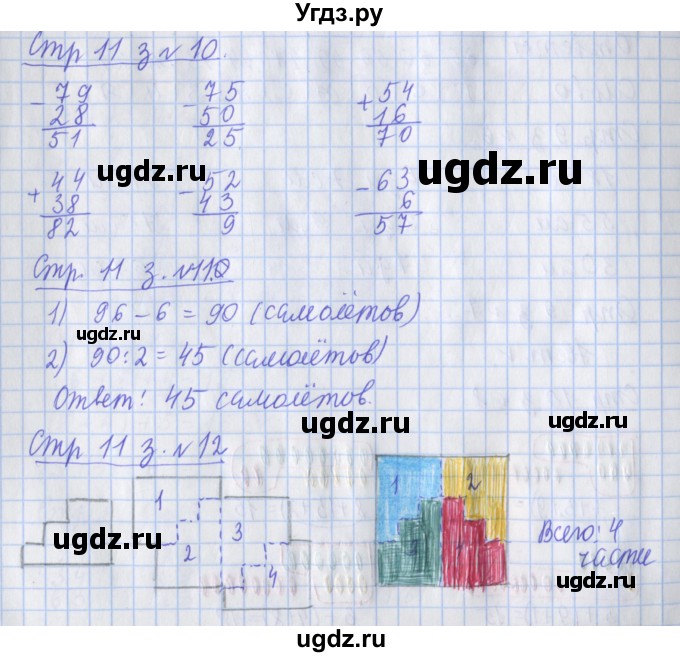 Угдз.ру
Стр 11 з № 10.
- 79 - 75 + 54
28 50 16
51 25 70
ugdz.ru ugdz.ru
+ 44 - 52 - 63
38 43 6
82 9 57
Стр. 11 з. № 11.
1) 96 - 6 = 90 (самолётов)
ugdz.ru
2) 90 : 2 = 45 (самолётов)
ugdz.ru
Ответ: 45 самолётов.
ugdz.ru
Стр 11 з. № 12
ugdz.ru
1 1 2
3 Всего: 4
2 части
4
ugdz.ru ugdz.ru
ugdz.ru